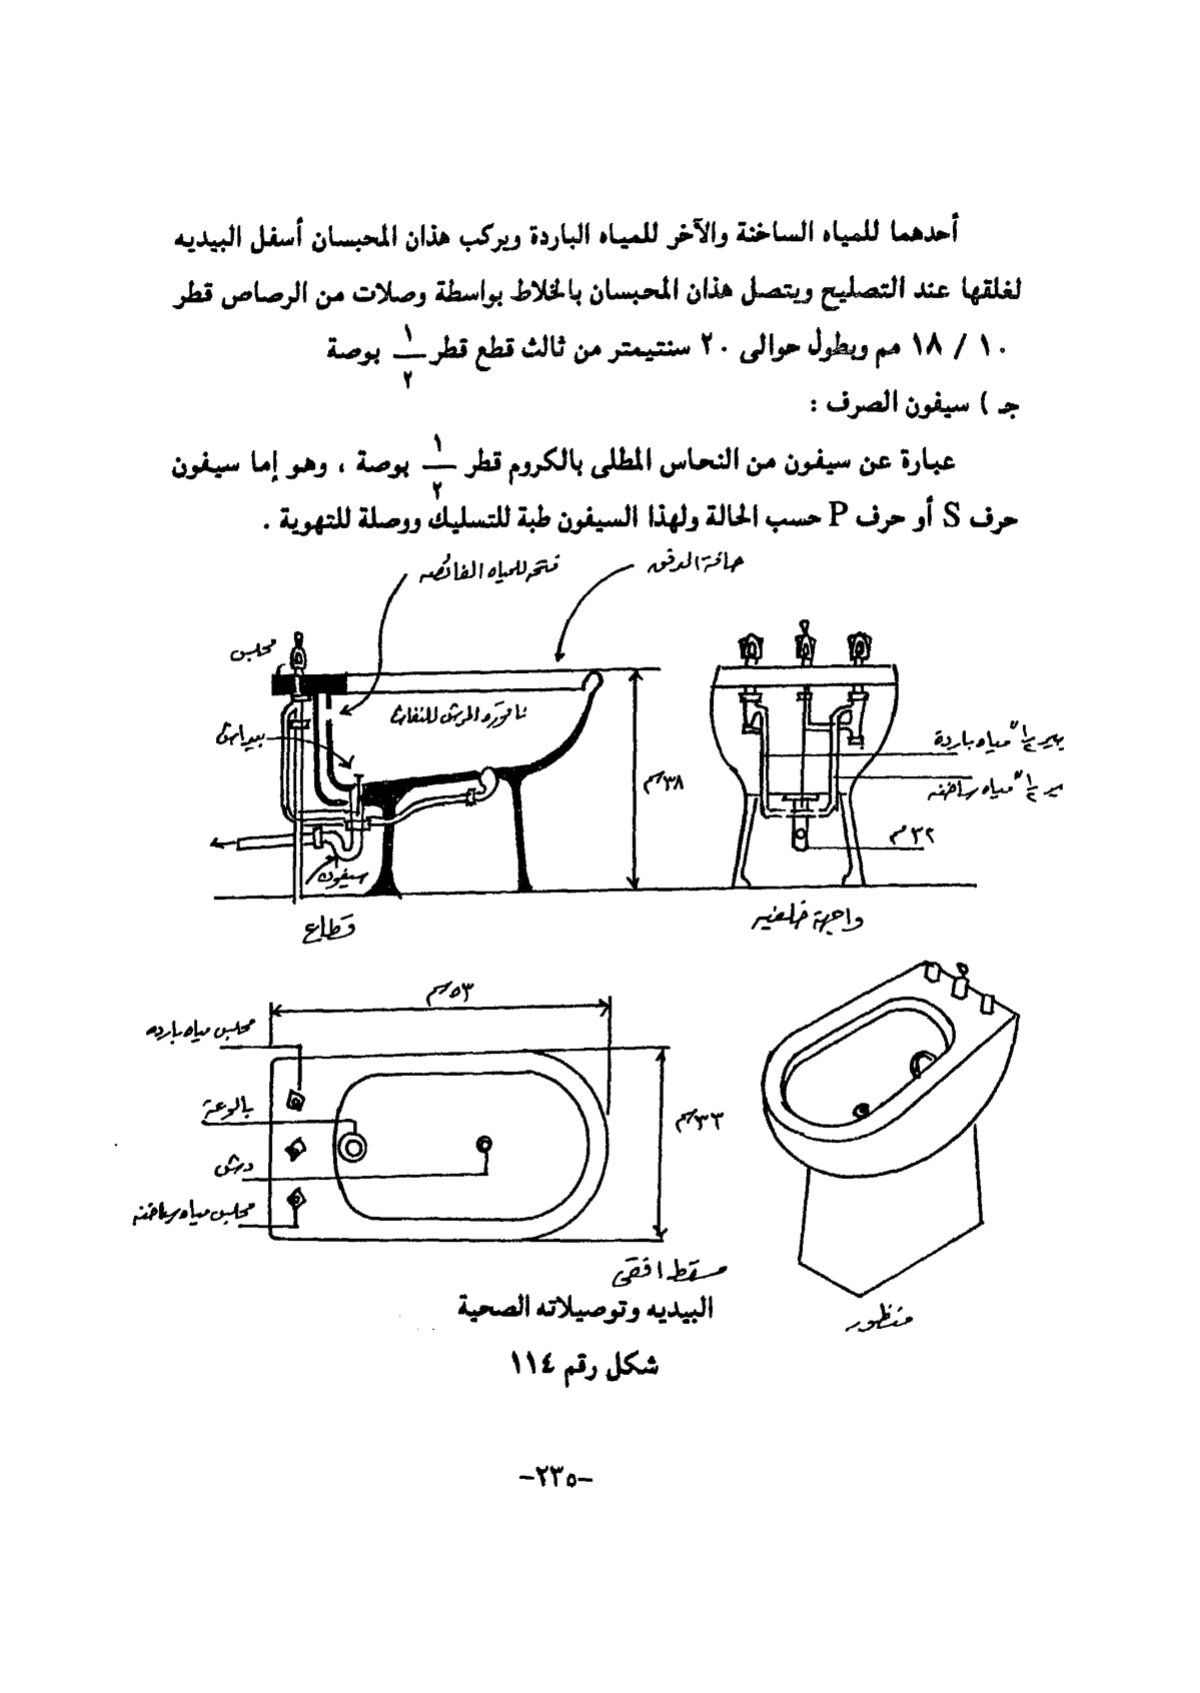 أحدهما للمياه الساخنة والآخر للمياه الباردة ويركب هذان المحبسان أسفل البيديه
لغلقها عند التصليح ويتصل هذان المحبسان بالخلاط بواسطة وصلات من الرصاص قطر
١٠ / ١٨ مم وبطول حوالى ٢٠ سنتيمتر من ثالث قطع قطر ١/٢ بوصة
جـ ) سيفون الصرف :
عبارة عن سيفون من النحاس المطلى بالكروم قطر ١/٢ بوصة ، وهو إما سيفون
حرف S أو حرف P حسب الحالة ولهذا السيفون طبة للتسليك ووصلة للتهوية .
حافة الدفق
فتحة للمياه الفائضه
محبس
نافورة المرش للنفاث
١/٢" مياه باردة
١/٢" مياه ساخنه
٣٨سم
٣٢م
سيفون
قطاع
واجهة خلفيه
٥٣سم
محبس مياه بارده
بالوعة
٣٣سم
دش
محبس مياه ساخنه
مسقط افقى
منظور
البيديه وتوصيلاته الصحية
شكل رقم ١١٤
-٢٣٥-